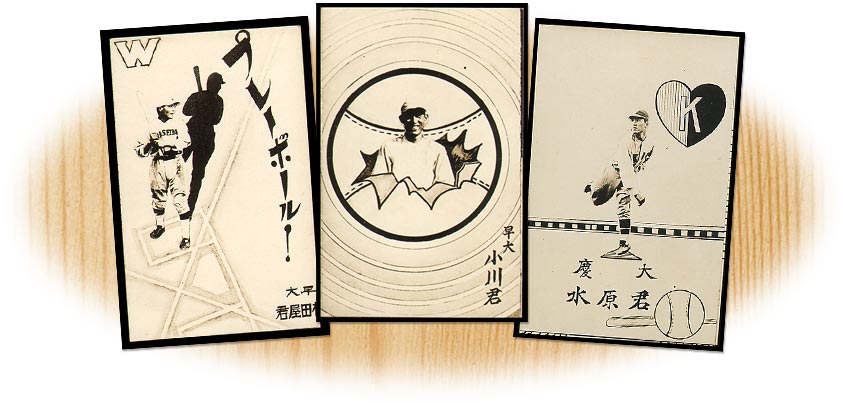 W
プレーボール!
ASEDA
早大
田屋君
早大
小川君
K
慶大
水原君